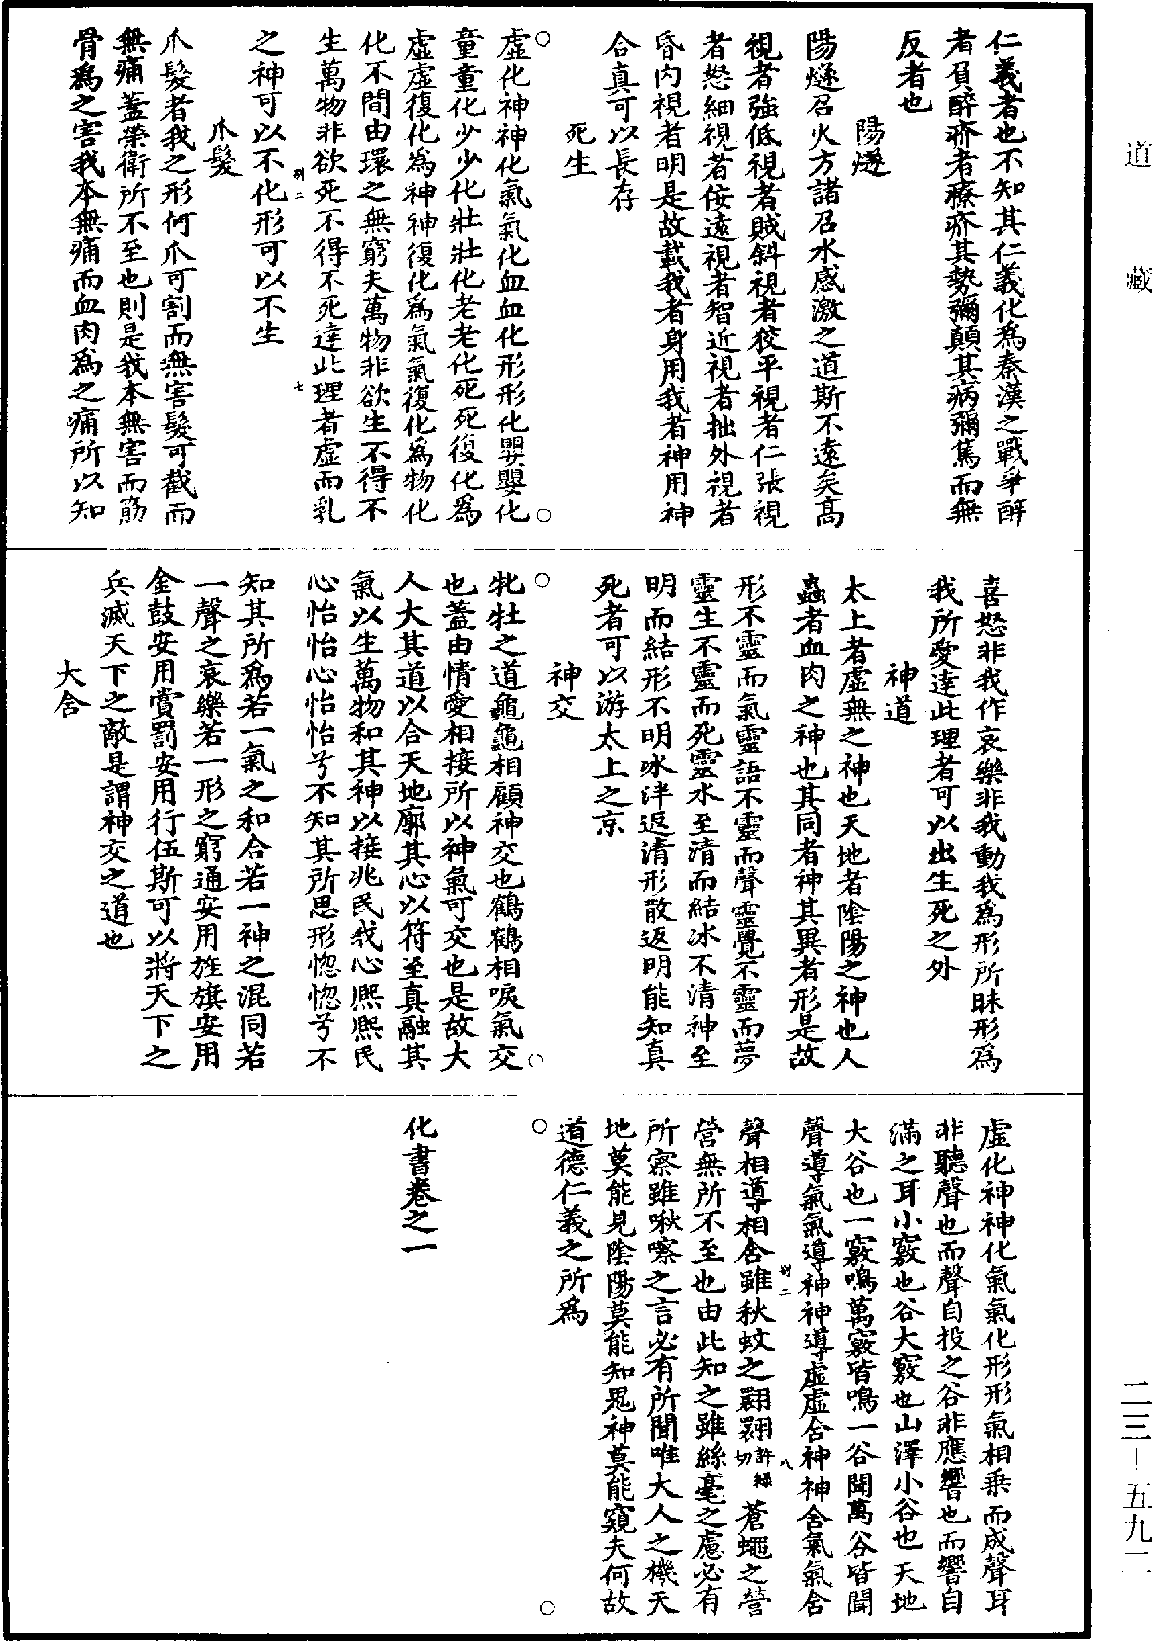 道藏
仁義者也不知其仁義化爲秦漢之戰爭醉
者負醉疥者療疥其勢彌顛其病彌篤而無
反者也
陽燧
陽燧召火方諸召水感激之道斯不遠矣高
視者強低視者賊斜視者狡平視者仁張視
者怒細視者佞遠視者智近視者拙外視者
昏內視者明是故載我者身用我者神用神
合真可以長存
死生
虛化神神化氣氣化血血化形形化嬰嬰化
童童化少少化壯壯化老老化死死復化爲
虛虛復化爲神神復化爲氣氣復化爲物化
化不間由環之無窮夫萬物非欲生不得不
生萬物非欲死不得不死達此理者虛而乳
別二 七
之神可以不化形可以不生
爪髮
爪髮者我之形何爪可割而無害髮可截而
無痛蓋榮衛所不至也則是我本無害而筋
骨爲之害我本無痛而血肉爲之痛所以知
喜怒非我作哀樂非我動我爲形所昧形爲
我所愛達此理者可以出生死之外
神道
太上者虛無之神也天地者陰陽之神也人
蟲者血肉之神也其同者神其異者形是故
形不靈而氣靈語不靈而聲靈覺不靈而夢
靈生不靈而死靈水至清而結冰不清神至
明而結形不明冰泮返清形散返明能知真
死者可以游太上之京
神交
牝牡之道龜龜相顧神交也鶴鶴相唳氣交
也蓋由情愛相接所以神氣可交也是故大
人大其道以合天地廓其心以符至真融其
氣以生萬物和其神以接兆民我心熙熙民
心怡怡心怡怡兮不知其所思形惚惚兮不
知其所爲若一氣之和合若一神之混同若
一聲之哀樂若一形之窮通安用旌旗安用
金鼓安用賞罰安用行伍斯可以將天下之
兵滅天下之敵是謂神交之道也
大含
虛化神神化氣氣化形形氣相乘而成聲耳
非聽聲也而聲自投之谷非應響也而響自
滿之耳小竅也谷大竅也山澤小谷也天地
大谷也一竅鳴萬竅皆鳴一谷聞萬谷皆聞
聲導氣氣導神神導虛虛含神神含氣氣含
聲相導相含雖秋蚊之翾翾許緣切蒼蠅之營
別二 八
營無所不至也由此知之雖絲毫之慮必有
所察雖啾嚓之言必有所聞唯大人之機天
地莫能見陰陽莫能知鬼神莫能窺夫何故
道德仁義之所爲
化書卷之一
二三—五九二